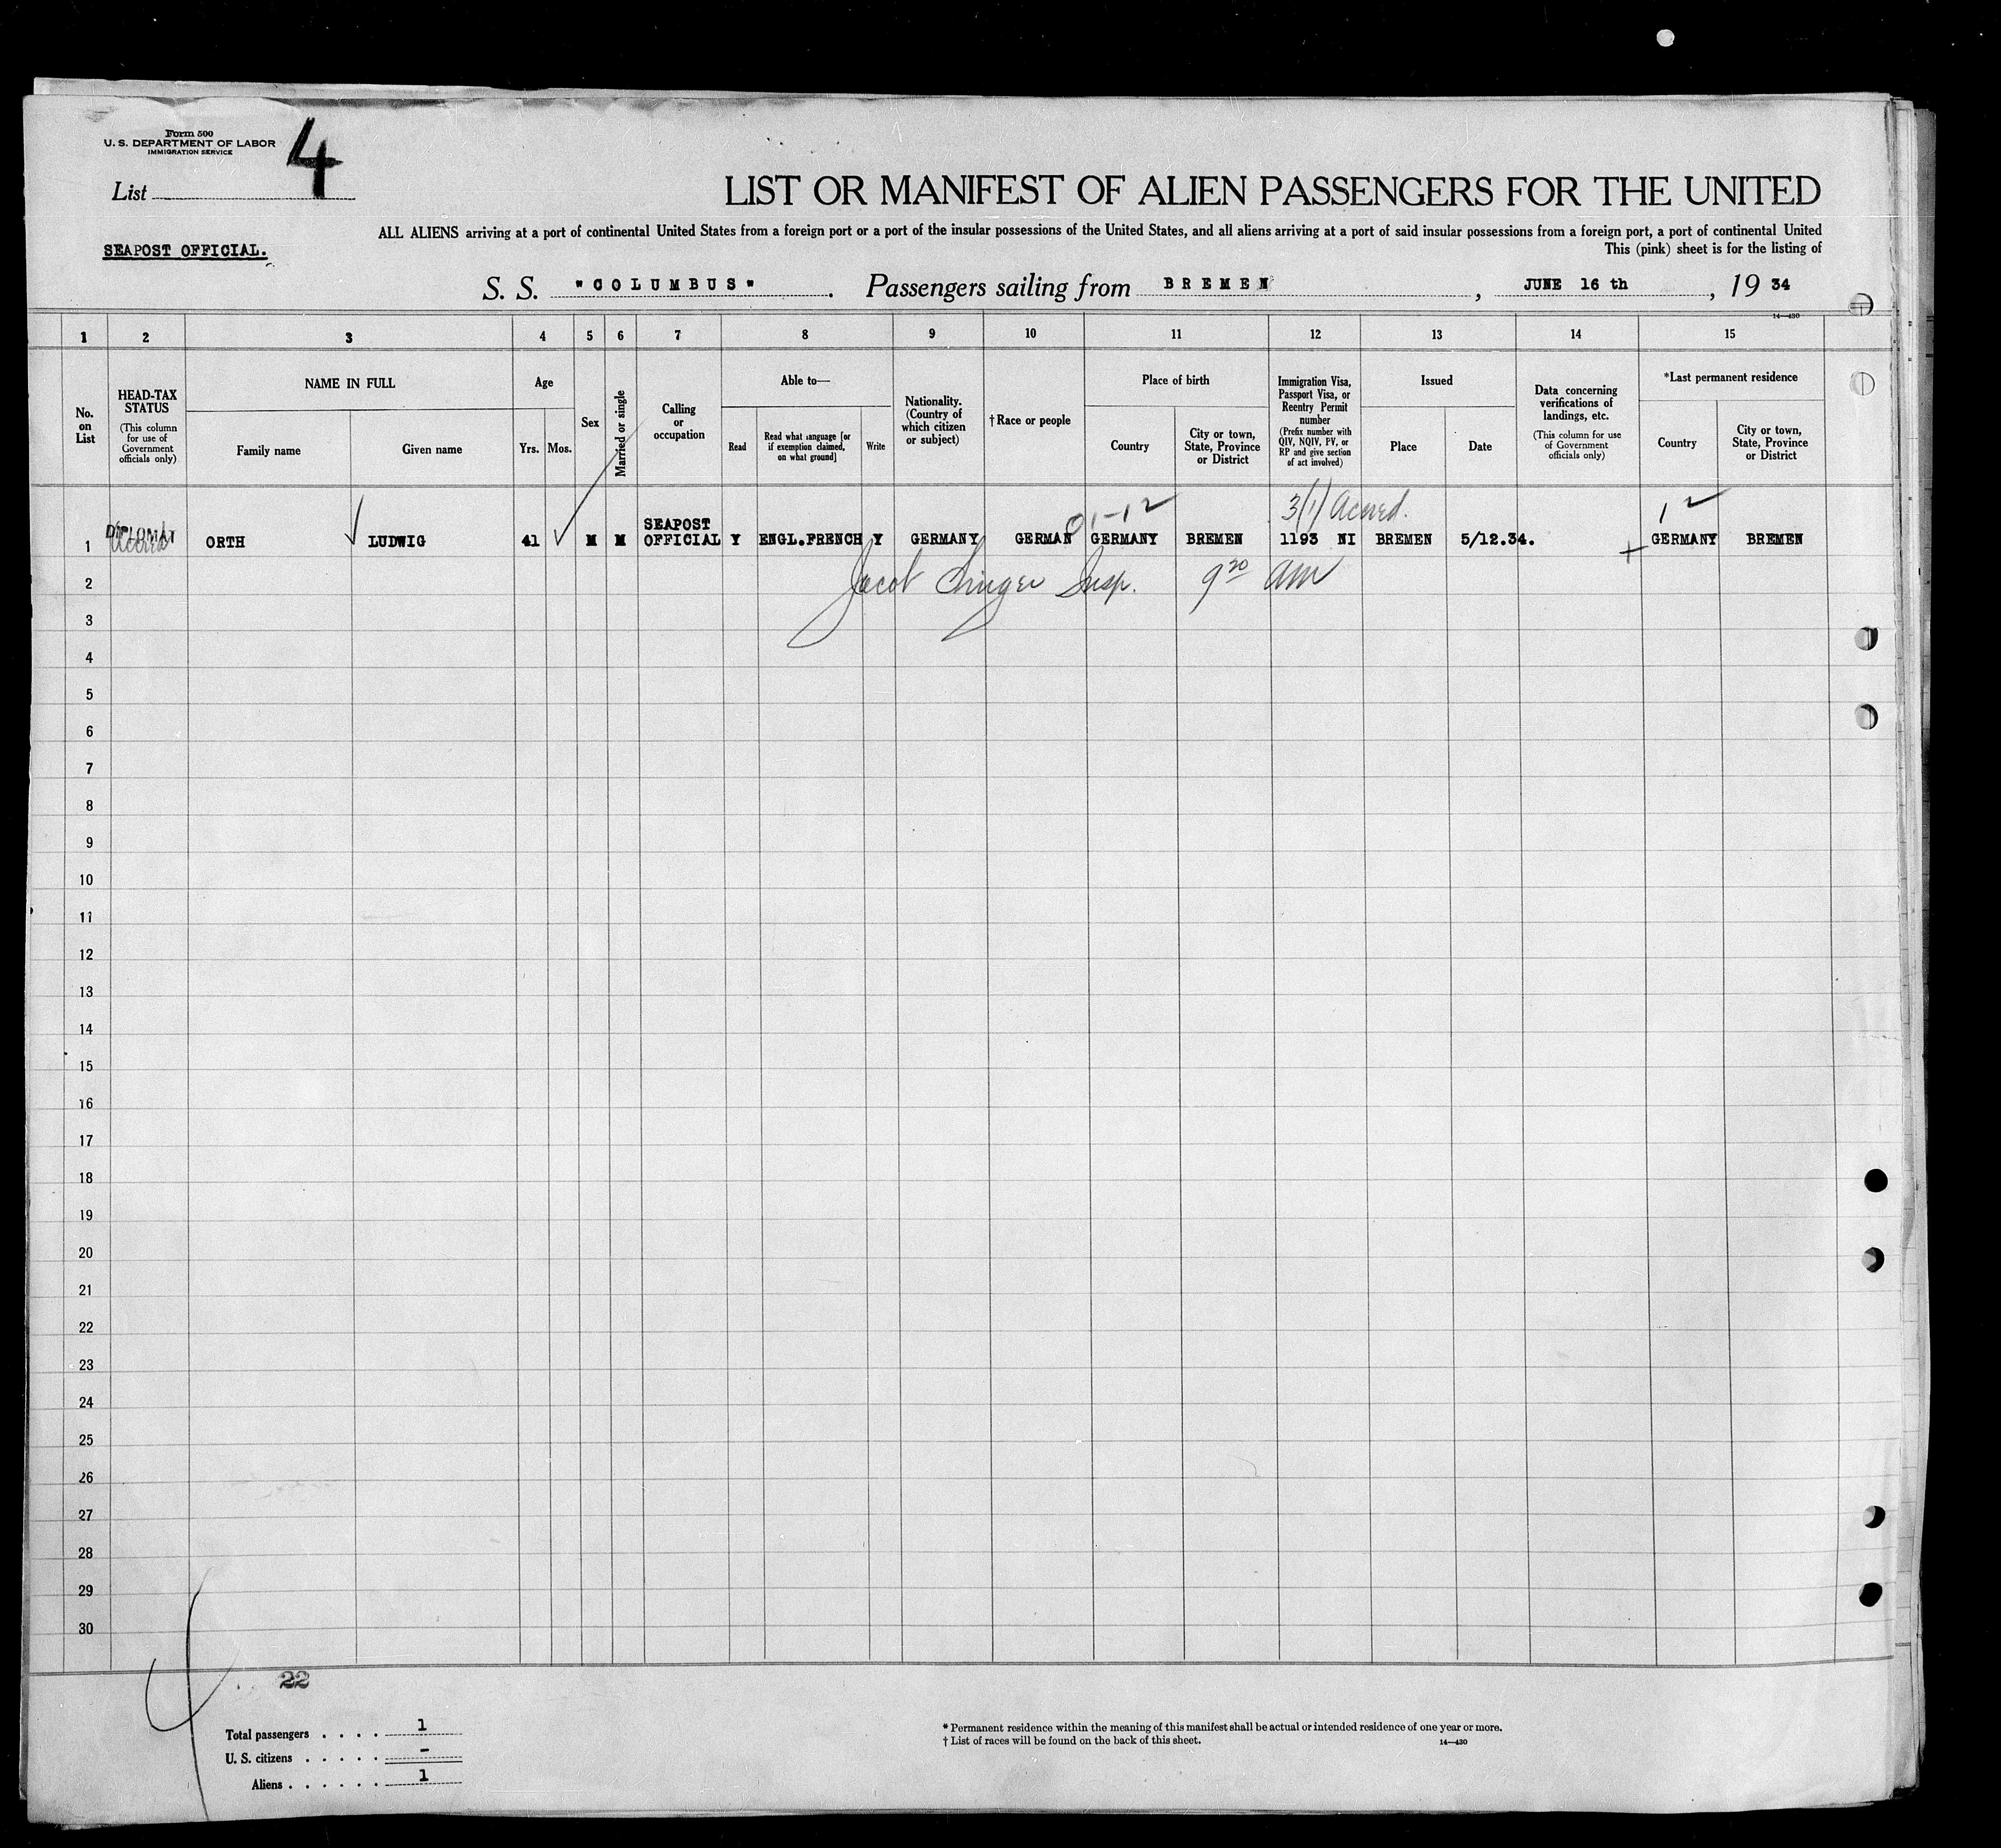 Form 500
U. S. DEPARTMENT OF LABOR
IMMIGRATION SERVICE
4
List
SEAPOST OFFICIAL.
LIST OR MANIFEST OF ALIEN PASSENGERS FOR THE UNITED
ALL ALIENS arriving at a port of continental United States from a foreign port or a port of the insular possessions of the United States, and all aliens arriving at a port of said insular possessions from a foreign port, a port of continental United
This (pink) sheet is for the listing of
S. S. "COLUMBUS". Passengers sailing from BREMEN, JUNE 16 th, 19 34
14—430
1 2 3 4 5 6 7 8 9 10 11 12 13 14 15
No. on List
HEAD-TAX STATUS
(This column for use of Government officials only)
NAME IN FULL
Family name
Given name
Age
Yrs. Mos.
Sex
Married or single
Calling or occupation
Able to—
Read
Read what language [or if exemption claimed, on what ground]
Write
Nationality. (Country of which citizen or subject)
†Race or people
Place of birth
Country
City or town, State, Province or District
Immigration Visa, Passport Visa, or Reentry Permit number
(Prefix number with QIV, NQIV, PV, or RP and give section of act involved)
Issued
Place
Date
Data concerning verifications of landings, etc.
(This column for use of Government officials only)
*Last permanent residence
Country
City or town, State, Province or District
01-12 3(1) Accred. 12
DIPLOMAT
Accred
1 ORTH LUDWIG 41 M M SEAPOST OFFICIAL Y ENGL.FRENCH Y GERMANY GERMAN GERMANY BREMEN 1193 NI BREMEN 5/12.34. + GERMANY BREMEN
2 Jacob Insp. 9 20 am
3
4
5
6
7
8
9
10
11
12
13
14
15
16
17
18
19
20
21
22
23
24
25
26
27
28
29
30
22
Total passengers . . . . 1
U. S. citizens . . . . . -
Aliens . . . . . . 1
* Permanent residence within the meaning of this manifest shall be actual or intended residence of one year or more.
† List of races will be found on the back of this sheet. 14—430